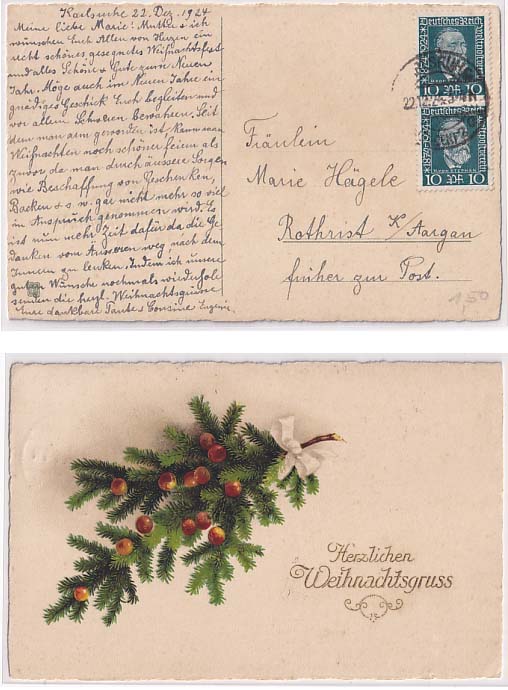 Karlsruhe 22. Dez. 1924
Meine liebe Marie! Mutter & ich
wünschen Euch Allen von Herzen ein
recht schönes gesegnetes Weihnachtsfest
und alles Schöne & Gute zum Neuen
Jahr. Möge auch im Neuen Jahre ein
gnädiges Geschick Euch begleiten und
vor allem Schweren bewahren. Seit
dem man arm geworden ist, kann man
Weihnachten noch schöner feiern als
zuvor da man durch äussere Sorgen
wie Beschaffung von Geschenken,
Backen & s. w. gar nicht mehr so viel
in Anspruch genommen wird. Es
ist nun mehr Zeit dafür da die Ge
danken vom Äusseren weg, nach dem
Innern zu lenken. Indem ich unsere
guten Wünsche nochmals wiederhole
senden die herzl. Weihnachtsgrüsse
Eure dankbare Tante & Cousine Eugenie
Deutsches Reich
1874-1924
Weltpostverein
10 Pf 10
22.12.24
1874-1924
Weltpostverein
10 Pf 10
Fräulein
Marie Hägele
Rothrist K/Aargau
früher zur Post.
1,50
Herzlichen
Weihnachtsgruss